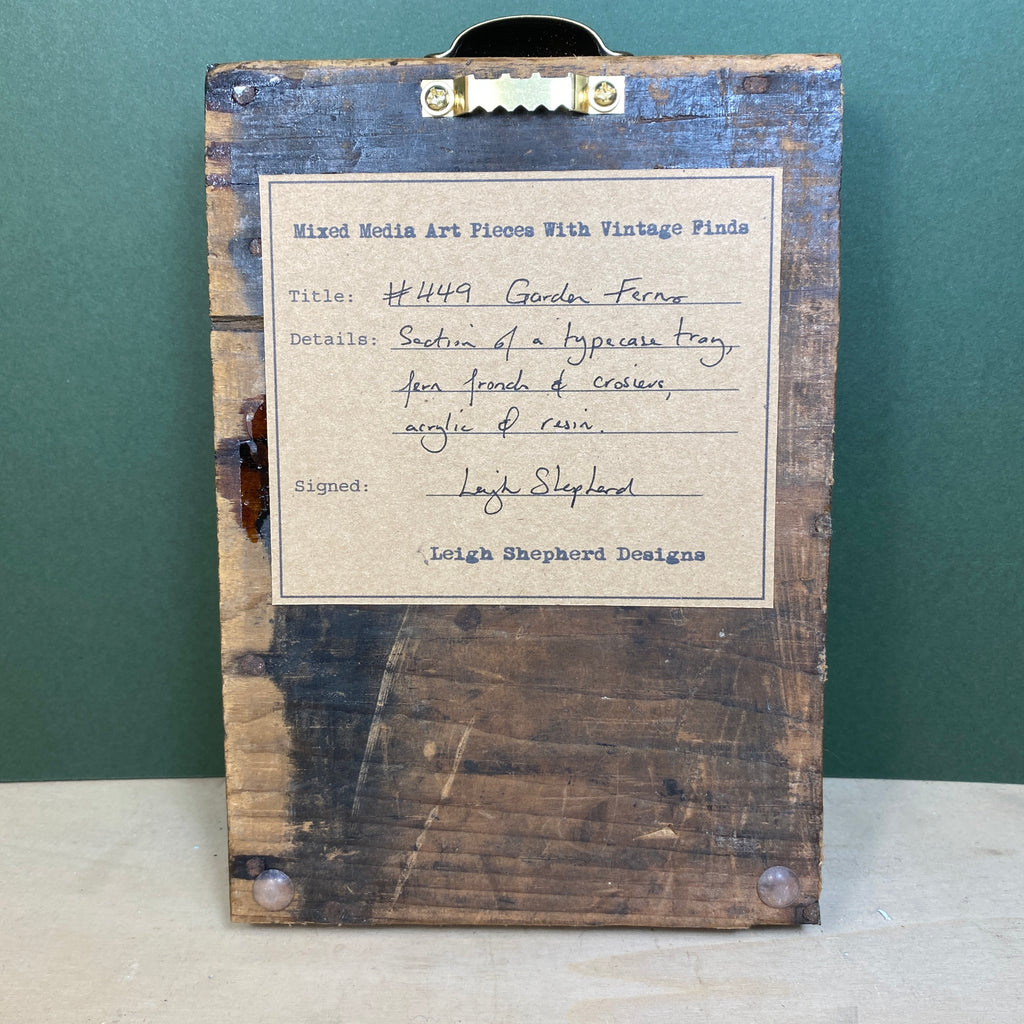 Mixed Media Art Pieces With Vintage Finds
Title: #449 Garden Ferns
Details: Section of a typecase tray,
fern fronds & crosiers,
acrylic & resin.
Signed: Leigh Shepherd
Leigh Shepherd Designs